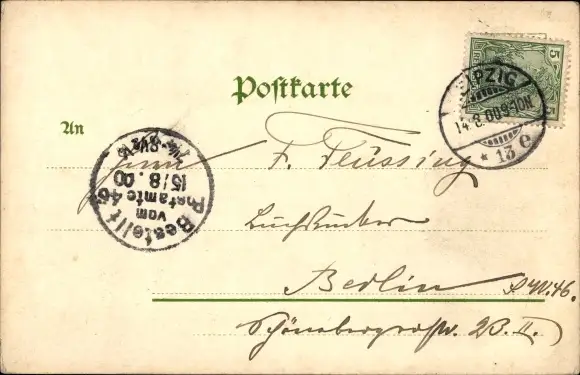 Postkarte
LEIPZIG
14.8.00 9-10 N
* 13 e
5
An
Herrn F. Flüssing
Berlin S.W.46.
Schönebergerstr. 23. II.
Bestellt
vom
Postamte 46
15/8.00